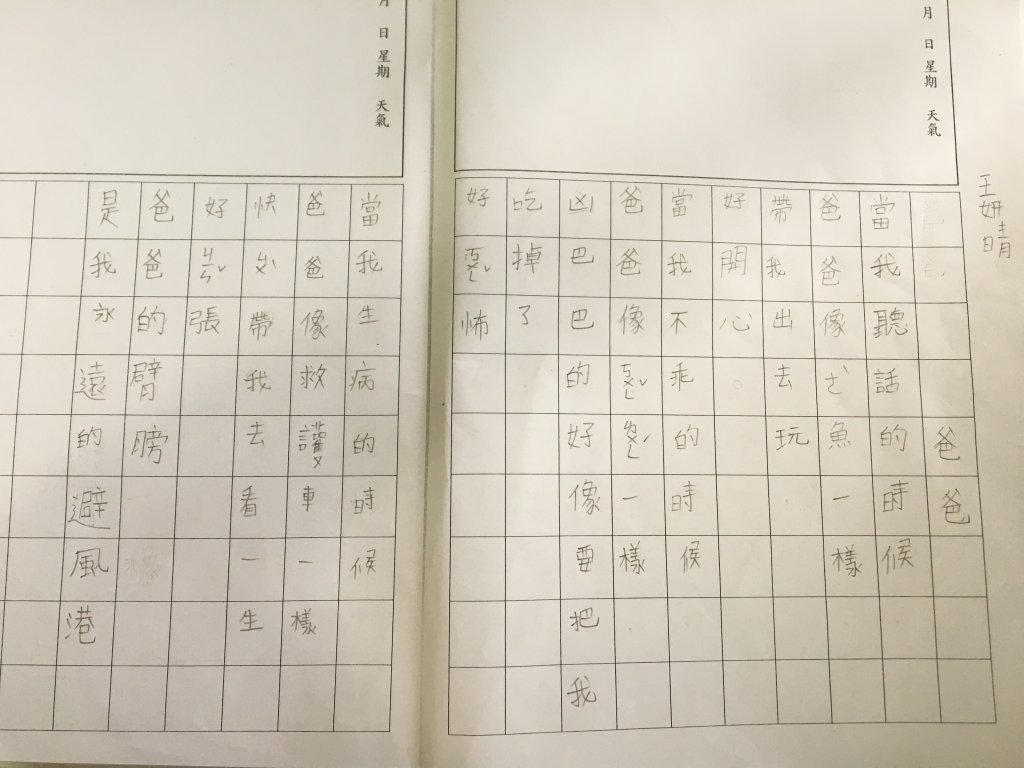 王妍晴
月 日 星期 天氣
爸爸
當我聽話的時候
爸爸像ㄜ魚一樣
帶我出去玩
好開心。
當我不乖的時候
爸爸像ㄎㄨㄥˇㄌㄨㄥˊ一樣
凶巴巴的好像要把我
吃掉了
好ㄎㄨㄥˇ怖
月 日 星期 天氣
當我生病的時候
爸爸像救護車一樣
快帶我去看一生
好ㄐㄧㄣˇ張
爸爸的臂膀
是我永遠的避風港